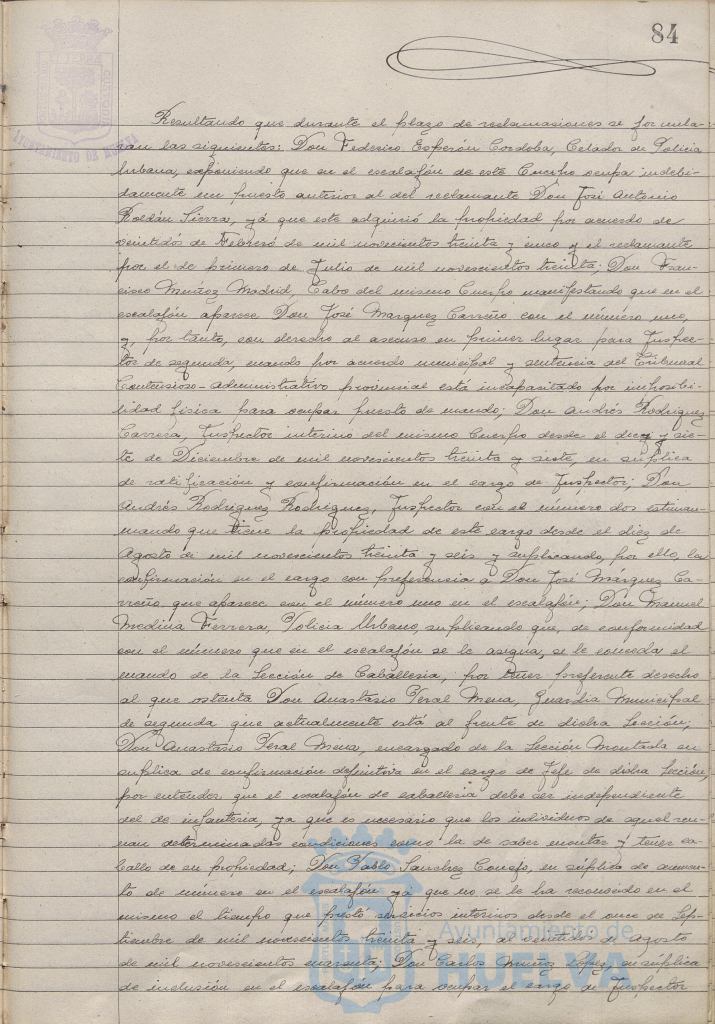 84
AYUNTAMIENTO DE HUELVA
Resultando que durante el plazo de reclamaciones se formula-
ran las siguientes: Don Federico Esperón Cordoba, Celador de Policia
Urbana, exponiendo que en el escalafón de este Cuerpo ocupa indebi-
damente un puesto anterior al del reclamante Don José Antonio
Roldán Sierra, yá que este adquirió la propiedad por acuerdo de
veintidós de Febrero de mil novecientos treinta y cinco y el reclamante
por el de primero de Julio de mil novescientos treinta; Don Fran-
cisco Muñoz Madrid, Cabo del mismo Cuerpo manifestando que en el
escalafón aparece Don José Marquez Carreño con el número uno,
y, por tanto, con derecho al ascenso en primer lugar para Inspec-
tor de segunda, cuando por acuerdo municipal y sentencia del Tribunal
Contencioso-administrativo provincial está incapacitado por imposibi-
lidad fisica para ocupar puesto de mando; Don Andrés Rodriguez
Carrera, Inspector interino del mismo Cuerpo desde el diez y sie-
te de Diciembre de mil novescientos treinta y siete, en suplica
de ratificación y confirmación en el cargo de Inspector; Don
Andrés Rodriguez Rodriguez, Inspector con el número dos estiman-
mando que tiene la propiedad de este cargo desde el diez de
Agosto de mil novescientos treinta y seis y suplicando, por ello, la
confirmación en el cargo con preferencia a Don José Márquez Ca-
rreño que aparece con el número uno en el escalafón; Don Manuel
Medina Ferrera, Policia Urbano, suplicando que, de conformidad
con el número que en el escalafón se le asigna, se le conceda el
mando de la Sección de Caballeria, por tener preferente derecho
al que ostenta Don Anastasio Peral Mena, Guardia Municipal
de segunda que actualmente está al frente de dicha Sección;
Don Anastasio Peral Mena, encargado de la Sección Montada en
suplica de confirmación definitiva en el cargo de Jefe de dicha Sección,
por entender que el escalafón de caballeria debe ser independiente
del de infanteria, ya que es necesario que los individuos de aquel reu-
nan determinadas condiciones como la de saber montar y tener ca-
ballo de su propiedad; Don Pablo Sanchez Conejo, en súplica de aumen-
to de número en el escalafón ya que no se le ha reconocido en el
mismo el tiempo que prestó servicios interinos desde el once de Sep-
tiembre de mil novescientos treinta y seis, al veintidos de Agosto
de mil novescientos cuarenta; Don Carlos Muñiz Lopez, en súplica
de inclusión en el escalafón para ocupar el cargo de Inspector
Ayuntamiento de
HUELVA